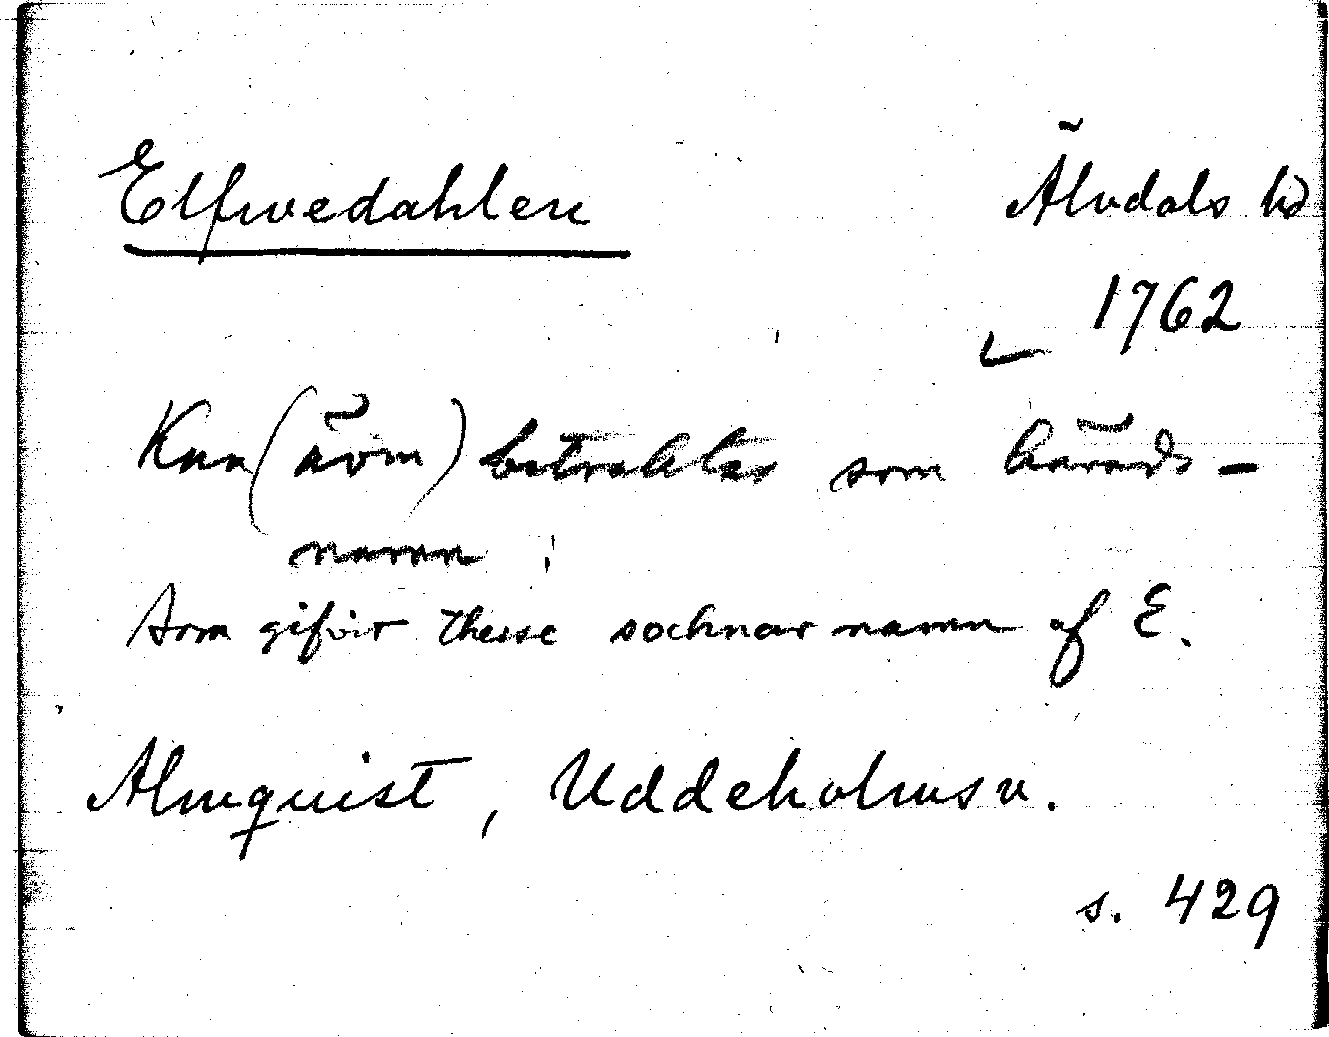 Elfwedahlen
Älvdals hd
1762
Kan (även) betraktas som härads-
namn!
som gifvir thesse sochnar namn af E.
Almquist, Uddeholmsv.
s. 429